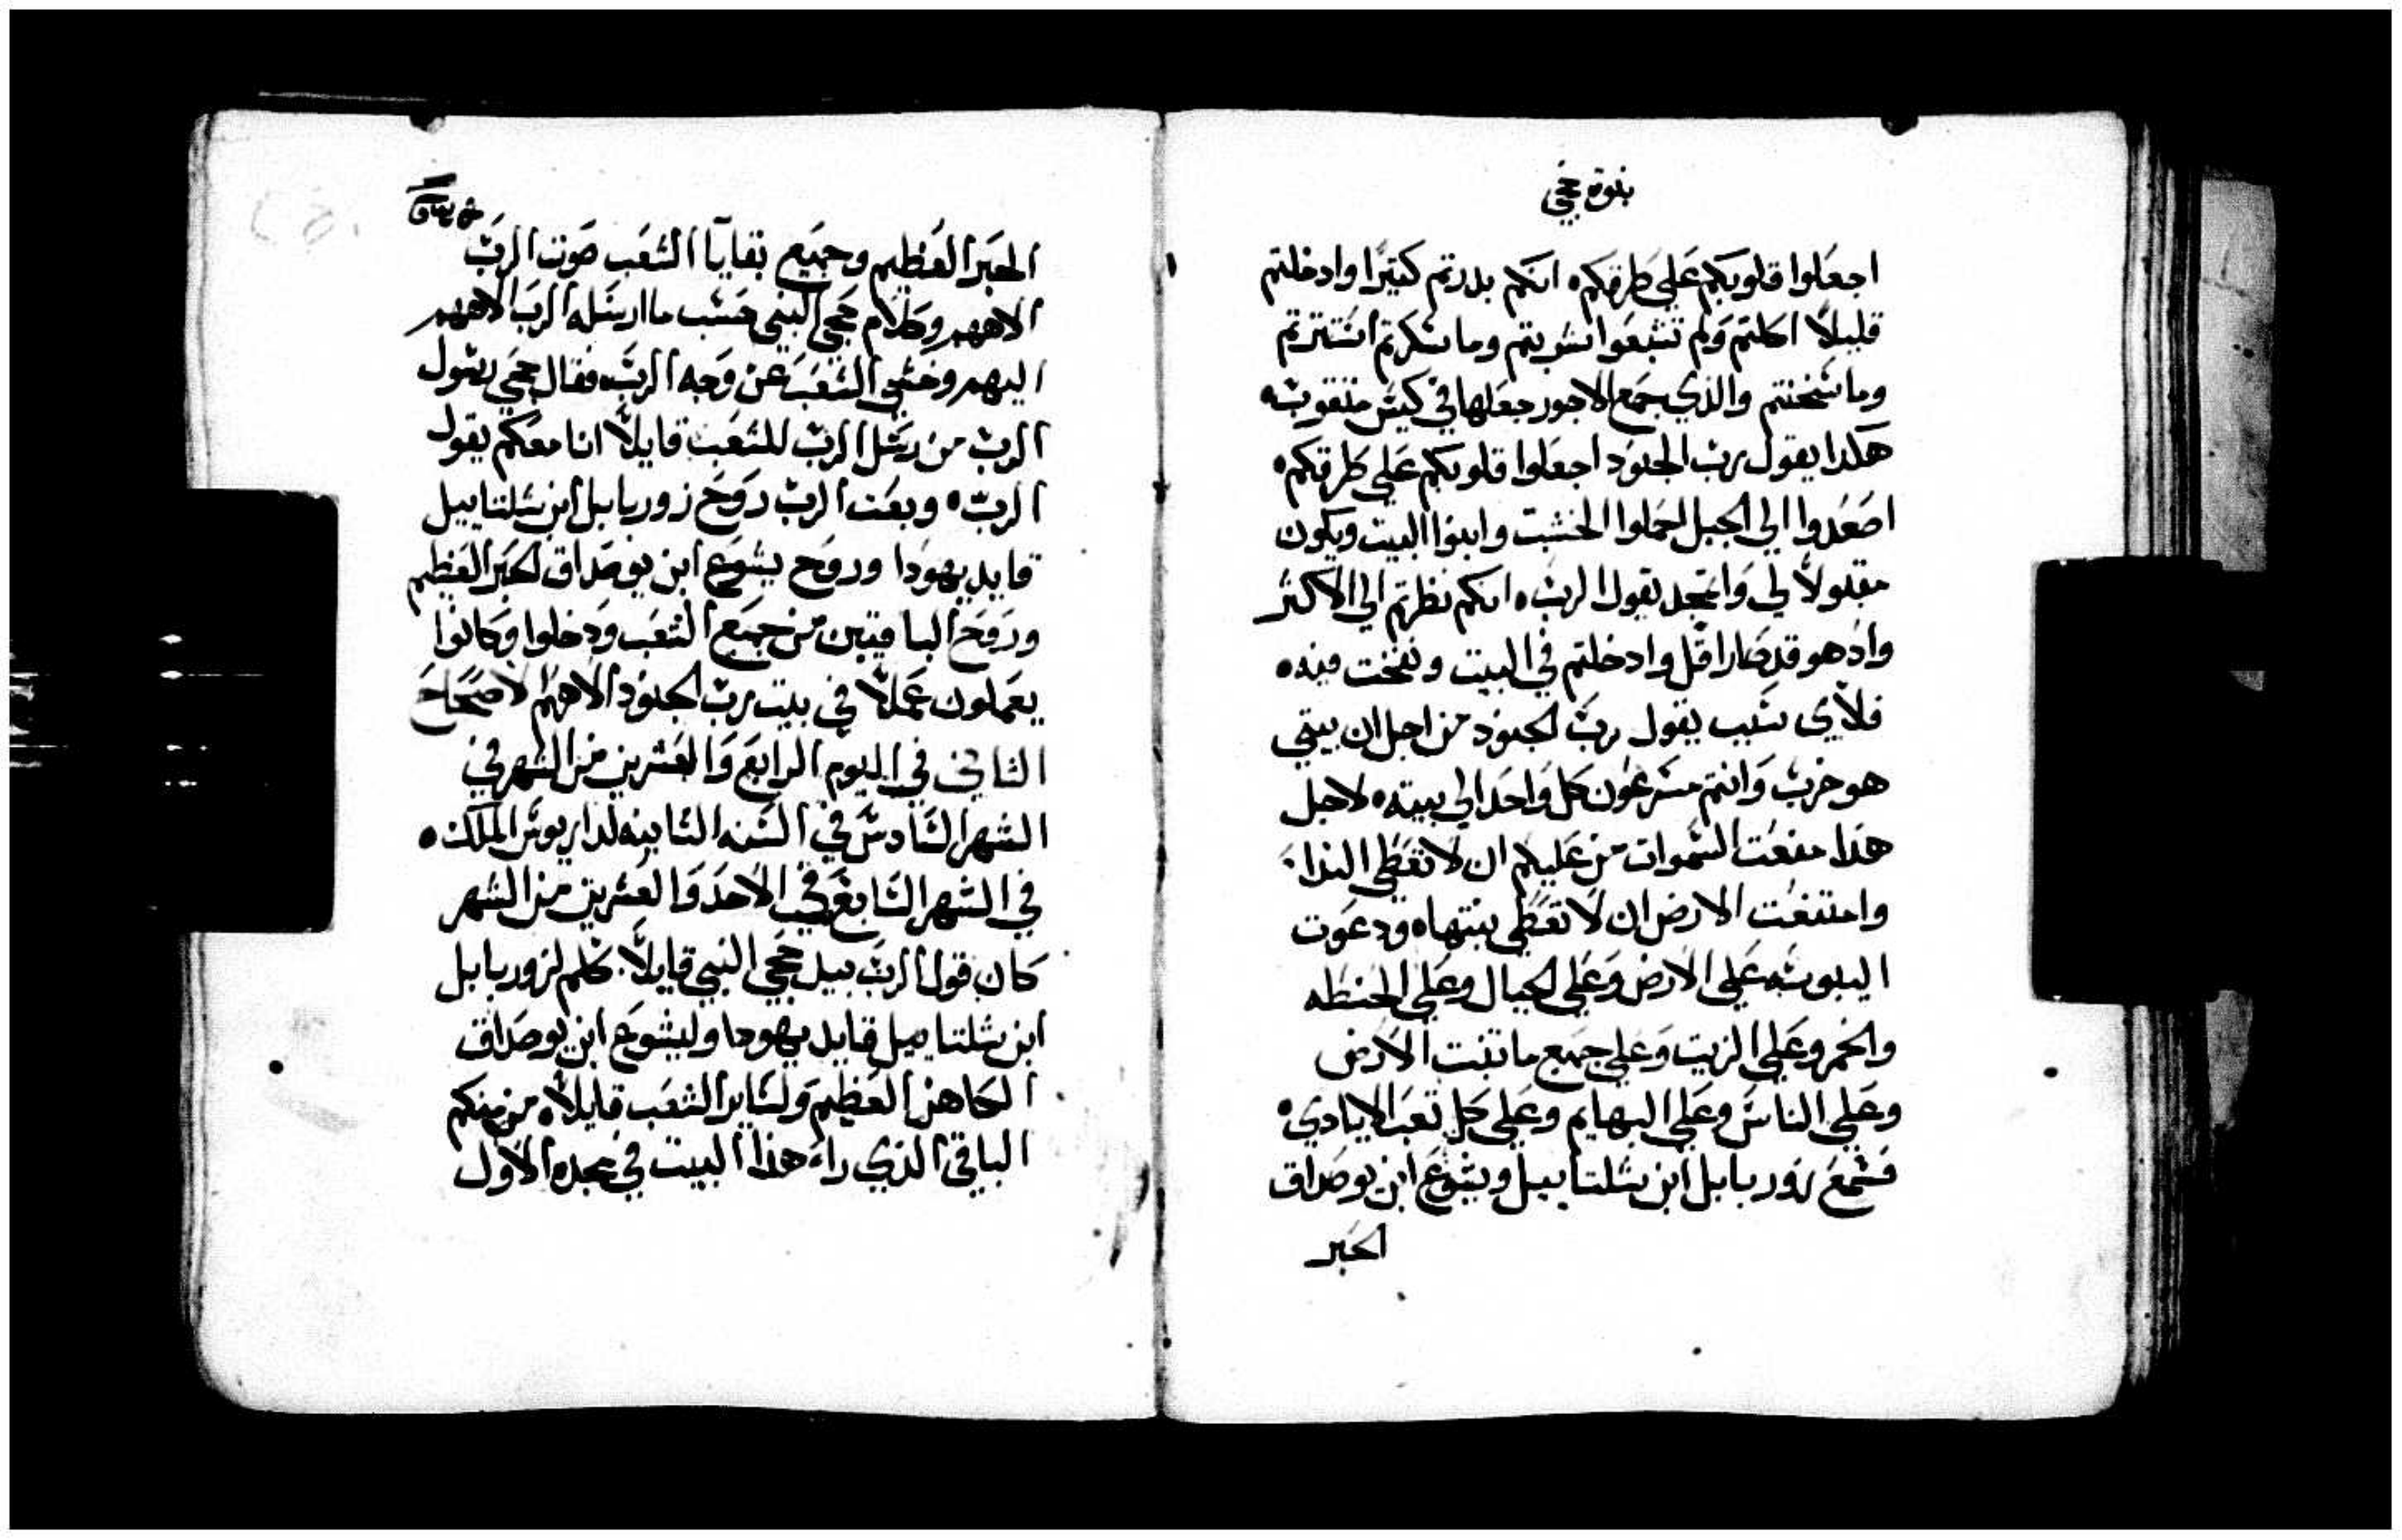 بنوة حجي
اجعلوا قلوبكم علي طرقكم ٥ انكم بدرتم كتيرا وادخلتم
قليلا اكلتم ولم تشبعوا شربتم وما سكرتم استترتم
وما سخنتم والذي جمع الاجور جعلها في كيس منقوب ٥
هكدا يقول رب الجنود اجعلوا قلوبكم علي طرقكم ٥
اصعدوا الي الجبل احملوا الخشب وابنوا البيت ويكون
مقبولا لي واتمجد يقول الرب ٥ انكم نظرتم الي الاكتر
واذ هو قد صار اقل وادخلتم في البيت ونفخت فيه ٥
فلاي سبب يقول رب الجنود من اجل ان بيتي
هو خرب وانتم مسرعون كل واحد الي بيته ٥ لاجل
هذا منعت السموات من عليكم ان لا تعطي الندا
وامتنعت الارض ان لا تعطي بنتها ٥ ودعوت
اليبوسه علي الارض وعلي الجبال وعلي الحنطه
والخمر وعلي الزيت وعلي جميع ما تنبت الارض
وعلي الناس وعلي البهايم وعلي كل تعب الايادي ٥
فسمع زوربابل ابن شلتاييل ويشوع ابن يوصداق
الحبر
الحبر العظيم وجميع بقايا الشعب صوت الرب
الاههم وكلام حجي النبي حسب ما ارسله الرب الاههم
اليهم وخشي الشعب عن وجه الرب ٥ فقال حجي رسول
الرب من رسل الرب للشعب قايلا انا معكم يقول
الرب ٥ وبعت الرب روح زوربابل ابن شلتاييل
قايد يهودا وروح يشوع ابن يوصداق الحبر العظيم
وروح الباقيين من جميع الشعب ودخلوا وكانوا
يعملون عملا في بيت رب الجنود الاههم الاصحاح
الثاني في اليوم الرابع والعشرين من الشهر في
الشهر السادس في السنه التانيه لداريوس الملك ٥
في الشهر السابع في الاحد والعشرين من الشهر
كان قول الرب بيد حجي النبي قايلا كلم لزوربابل
ابن شلتاييل قايد يهودا وليشوع ابن يوصداق
الكاهن العظيم ولساير الشعب قايلا ٥ من منكم
الباقي الذي راء هذا البيت في مجده الاول